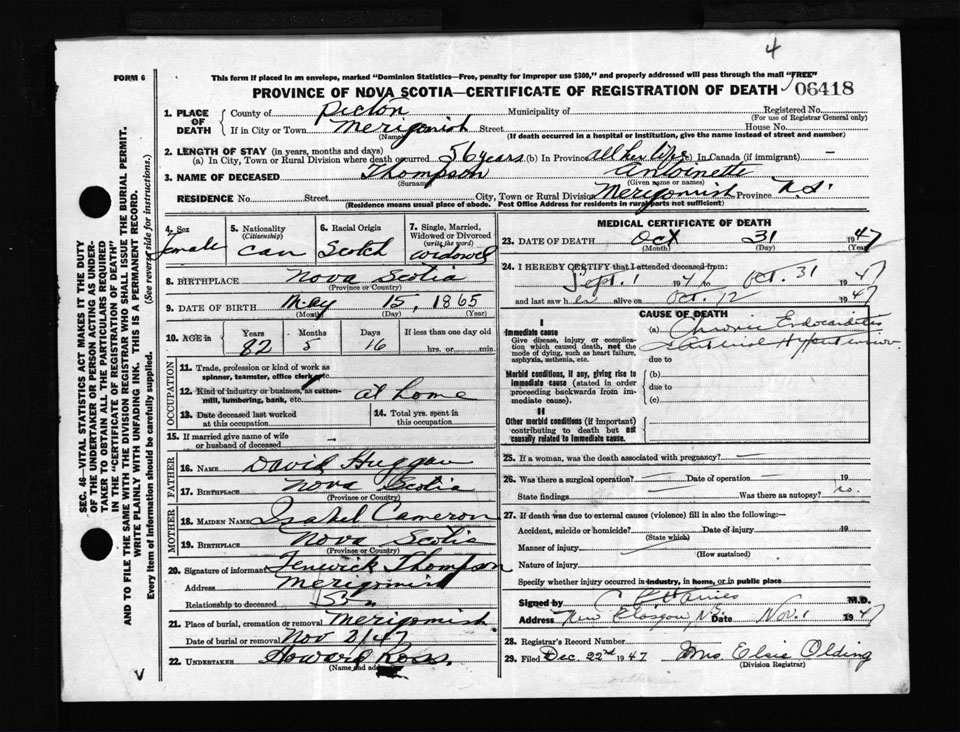 4
FORM 6
This form if placed in an envelope, marked "Dominion Statistics—Free, penalty for improper use $300," and properly addressed will pass through the mail "FREE"
PROVINCE OF NOVA SCOTIA—CERTIFICATE OF REGISTRATION OF DEATH
06418
SEC. 46—VITAL STATISTICS ACT MAKES IT THE DUTY
OF THE UNDERTAKER OR PERSON ACTING AS UNDER-
TAKER TO OBTAIN ALL THE PARTICULARS REQUIRED
IN THE "CERTIFICATE OF REGISTRATION OF DEATH"
AND TO FILE THE SAME WITH THE DIVISION REGISTRAR WHO SHALL ISSUE THE BURIAL PERMIT.
WRITE PLAINLY WITH UNFADING INK. THIS IS A PERMANENT RECORD.
Every item of information should be carefully supplied. (See reverse side for instructions.)
1. PLACE OF DEATH
County of Pictou Municipality of Registered No.
(For use of Registrar General only)
If in City or Town Merigomish Street House No.
(Name) (If death occurred in a hospital or institution, give the name instead of street and number)
2. LENGTH OF STAY (in years, months and days)
(a) In City, Town or Rural Division where death occurred 56 years (b) In Province all her life (c) In Canada (if immigrant) —
3. NAME OF DECEASED Thompson Antoinette
(Surname) (Given name or names)
RESIDENCE No. Street City, Town or Rural Division Merigomish Province N.S.
(Residence means usual place of abode. Post Office Address for residents in rural parts not sufficient)
4. Sex
female
5. Nationality
(Citizenship)
Can
6. Racial Origin
Scotch
7. Single, Married,
Widowed or Divorced
(write the word)
widowed
8. BIRTHPLACE Nova Scotia
(Province or Country)
9. DATE OF BIRTH May 15, 1865
(Month) (Day) (Year)
10. AGE in Years Months Days If less than one day old
82 5 16 hrs. or min.
OCCUPATION
11. Trade, profession or kind of work as
spinner, teamster, office clerk, etc.
12. Kind of industry or business, as cotton-
mill, lumbering, bank, etc. at home
13. Date deceased last worked
at this occupation
14. Total yrs. spent in
this occupation
15. If married give name of wife
or husband of deceased
FATHER
16. NAME David Huggan
17. BIRTHPLACE Nova Scotia
(Province or Country)
MOTHER
18. MAIDEN NAME Isabel Cameron
19. BIRTHPLACE Nova Scotia
(Province or Country)
20. Signature of informant Fenwick Thompson
Address Merigomish
Relationship to deceased Son
21. Place of burial, cremation or removal Merigomish
Date of burial or removal Nov 2/47
22. UNDERTAKER Howard Ross.
(Name and
MEDICAL CERTIFICATE OF DEATH
23. DATE OF DEATH Oct 31 1947
(Month) (Day) (Year)
24. I HEREBY CERTIFY that I attended deceased from:
Sept. 1 194 to Oct. 31 1947
and last saw her alive on Oct. 12 1947
CAUSE OF DEATH
I
Immediate cause
Give disease, injury or complica-
tion which caused death, not the
mode of dying, such as heart failure,
asphyxia, asthenia, etc.
(a) Chronic Endocarditis
due to
Morbid conditions, if any, giving rise to
immediate cause (stated in order
proceeding backwards from im-
mediate cause).
(b)
due to
(c)
II
Other morbid conditions (if important)
contributing to death but not
causally related to immediate cause.
25. If a woman, was the death associated with pregnancy? —
26. Was there a surgical operation? — Date of operation — 19
State findings Was there an autopsy? no.
27. If death was due to external causes (violence) fill in also the following:—
Accident, suicide or homicide? Date of injury 19
(State which)
Manner of injury
(How sustained)
Nature of injury
Specify whether injury occurred in industry, in home, or in public place
Signed by M.D.
Address New Glasgow, N.S. Date Nov. 1 1947
28. Registrar's Record Number
29. Filed Dec. 22nd 1947 Mrs. Elsie Olding
(Division Registrar)